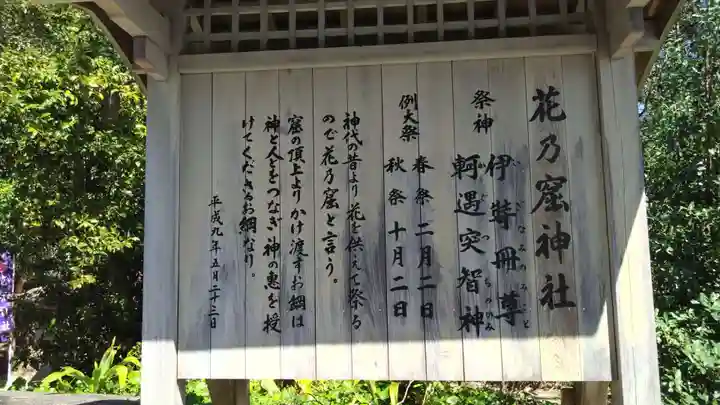 花乃窟神社
祭神 伊弉冊尊
いざなみのみこと
軻遇突智神
かぐつちのかみ
例大祭 春祭 二月二日
秋祭 十月二日
神代の昔より花を供えて祭る
ので花乃窟と言う。
窟の頂上よりかけ渡すお綱は
神と人をつなぎ神の恵を授
けてくださるお綱なり。
平成九年五月二十三日